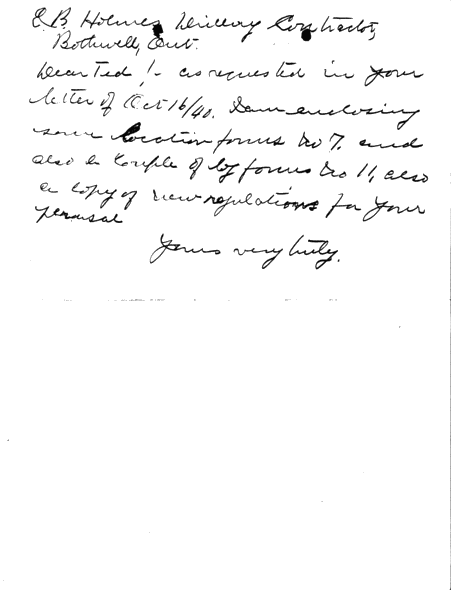 E.B. Holmes, Drilling Contractor,
Bothwell, Ont.
Dear Ted! - as requested in your
letter of Oct 16/40. I am enclosing
some location forms No 7. and
also a couple of log forms No 11, also
a copy of new regulations for your
perusal
Yours very truly.